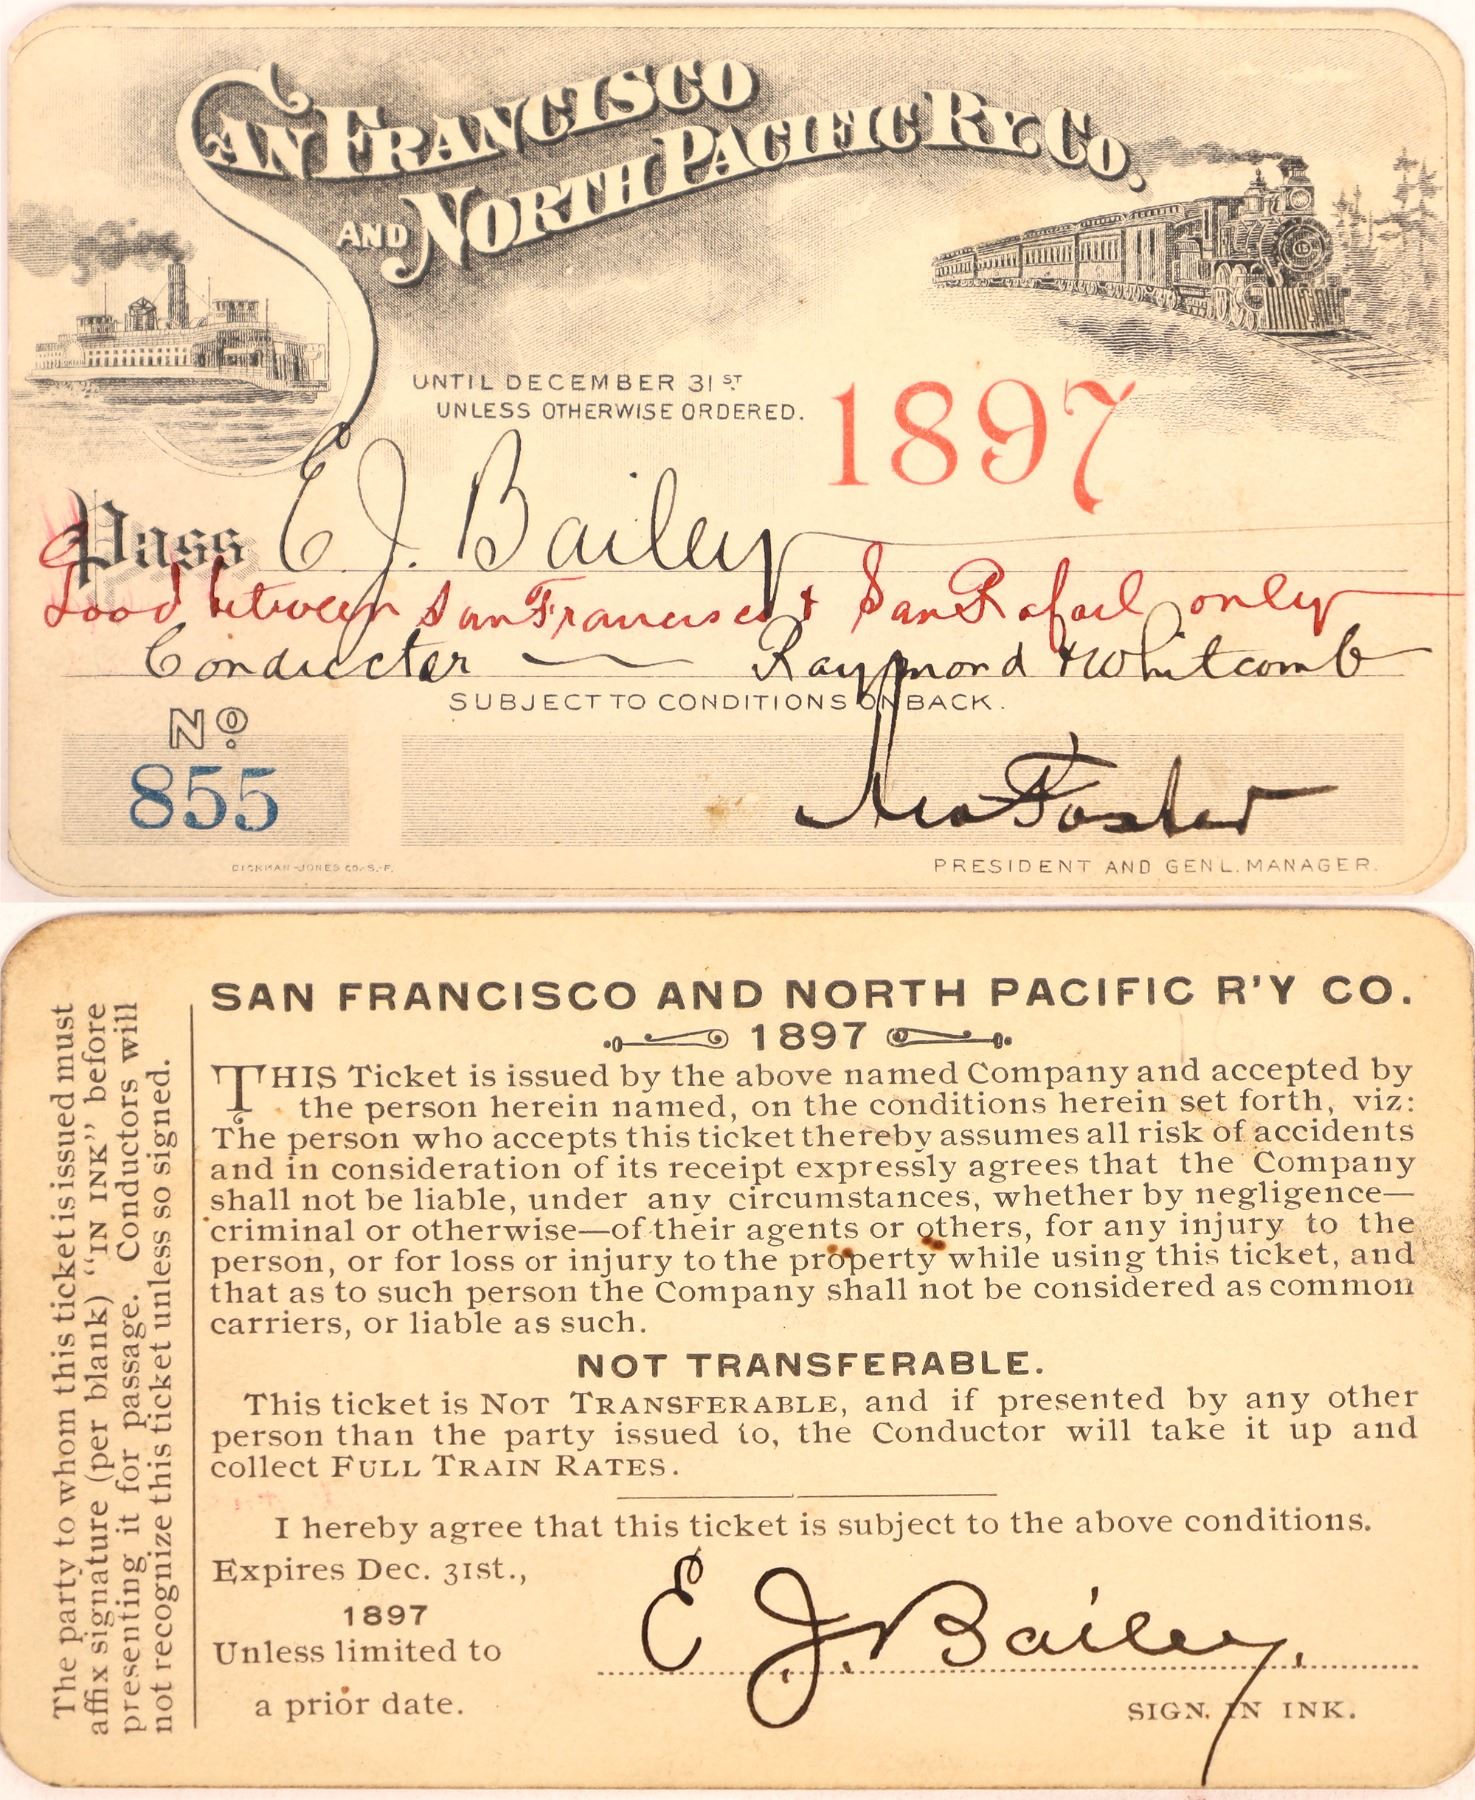 SAN FRANCISCO
AND NORTH PACIFIC RY. CO.
UNTIL DECEMBER 31ST
UNLESS OTHERWISE ORDERED.
1897
Pass E. J. Bailey
Good between San Francisco & San Rafael only
Conductor Raymond & Whitcomb
SUBJECT TO CONDITIONS ON BACK.
No.
855
DICKMAN-JONES CO. S.F.
PRESIDENT AND GENL. MANAGER.
SAN FRANCISCO AND NORTH PACIFIC R'Y CO.
1897
THIS Ticket is issued by the above named Company and accepted by
the person herein named, on the conditions herein set forth, viz:
The person who accepts this ticket thereby assumes all risk of accidents
and in consideration of its receipt expressly agrees that the Company
shall not be liable, under any circumstances, whether by negligence—
criminal or otherwise—of their agents or others, for any injury to the
person, or for loss or injury to the property while using this ticket, and
that as to such person the Company shall not be considered as common
carriers, or liable as such.
NOT TRANSFERABLE.
This ticket is NOT TRANSFERABLE, and if presented by any other
person than the party issued to, the Conductor will take it up and
collect FULL TRAIN RATES.
I hereby agree that this ticket is subject to the above conditions.
Expires Dec. 31st.,
1897
Unless limited to
a prior date.
E. J. Bailey.
SIGN IN INK.
The party to whom this ticket is issued must
affix signature (per blank) "IN INK" before
presenting it for passage. Conductors will
not recognize this ticket unless so signed.